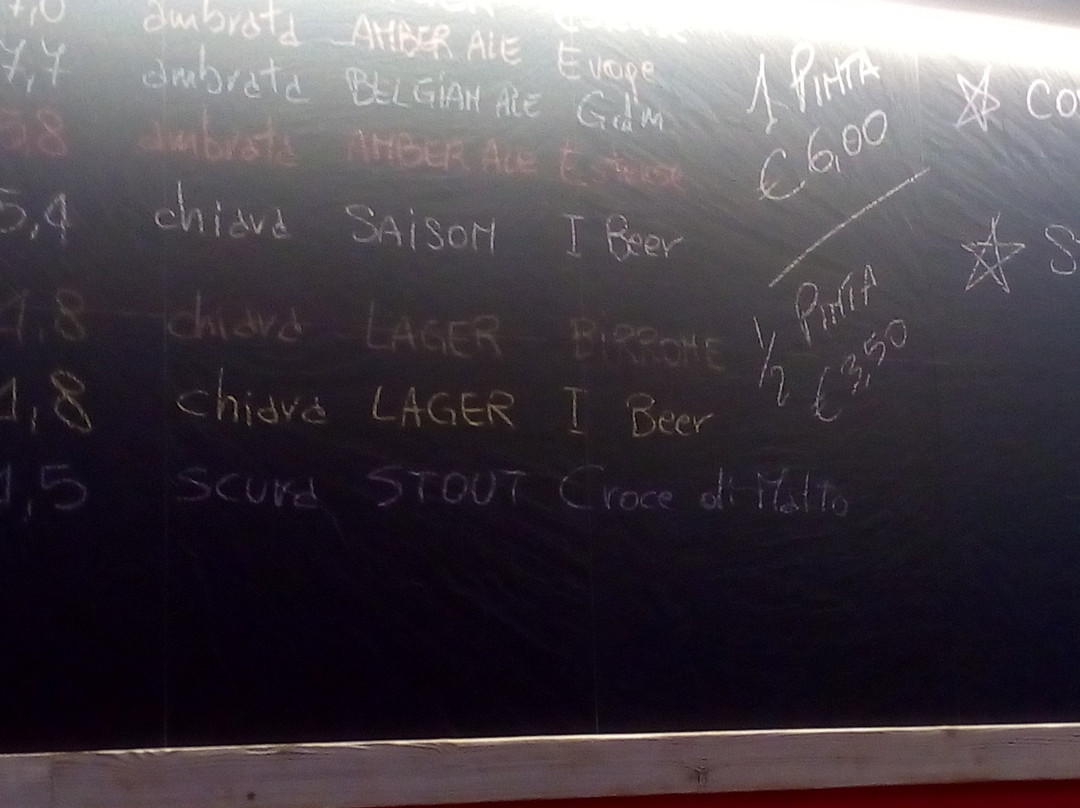 7,0 ambrata AMBER ALE
7,7 ambrata BELGIAN ALE
5,8 ambrata AMBER ALE
5,4 chiara SAISON I Beer
4,8 chiara LAGER BIRRONE
4,8 chiara LAGER I Beer
4,5 scura STOUT Croce di Malto
1 PINTA
€ 6,00
1/2 PINTA
€ 3,50